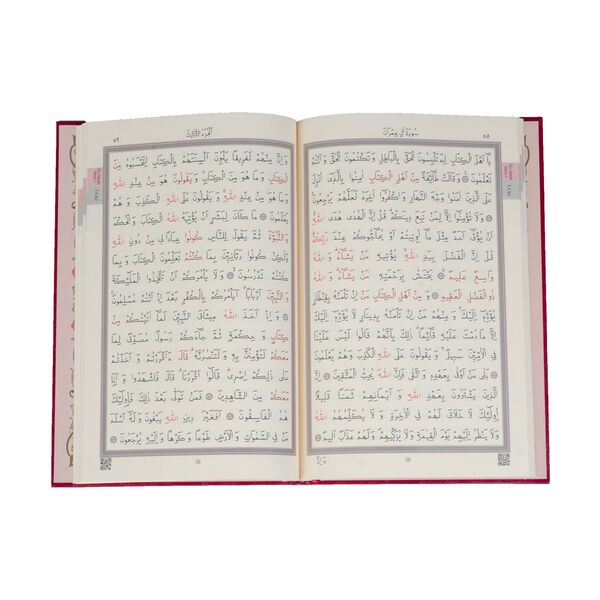 سُورَةُ اٰلِ عِمْرٰنَ ٥٨
يَٓا اَهْلَ الْكِتَابِ لِمَ تَلْبِسُونَ الْحَقَّ بِالْبَاطِلِ وَتَكْتُمُونَ الْحَقَّ وَاَنْتُمْ
تَعْلَمُونَ ۞ وَقَالَتْ طَٓائِفَةٌ مِنْ اَهْلِ الْكِتَابِ اٰمِنُوا بِالَّذٖٓى اُنْزِلَ
عَلَى الَّذٖينَ اٰمَنُوا وَجْهَ النَّهَارِ وَاكْفُرُٓوا اٰخِرَهُ لَعَلَّهُمْ يَرْجِعُونَ
۞ وَلَا تُؤْمِنُٓوا اِلَّا لِمَنْ تَبِعَ دٖينَكُمْ قُلْ اِنَّ الْهُدٰى هُدَى اللّٰهِ
اَنْ يُؤْتٰٓى اَحَدٌ مِثْلَ مَٓا اُوتٖيتُمْ اَوْ يُحَٓاجُّوكُمْ عِنْدَ رَبِّكُمْ
قُلْ اِنَّ الْفَضْلَ بِيَدِ اللّٰهِ يُؤْتٖيهِ مَنْ يَشَٓاءُ وَاللّٰهُ
وَاسِعٌ عَلٖيمٌ ۞ يَخْتَصُّ بِرَحْمَتِهٖ مَنْ يَشَٓاءُ وَاللّٰهُ
ذُو الْفَضْلِ الْعَظٖيمِ ۞ وَمِنْ اَهْلِ الْكِتَابِ مَنْ اِنْ تَأْمَنْهُ بِقِنْطَارٍ
يُؤَدِّهٖٓ اِلَيْكَ وَمِنْهُمْ مَنْ اِنْ تَأْمَنْهُ بِدٖينَارٍ لَا يُؤَدِّهٖٓ اِلَيْكَ
اِلَّا مَا دُمْتَ عَلَيْهِ قَٓائِمًا ذٰلِكَ بِاَنَّهُمْ قَالُوا لَيْسَ عَلَيْنَا
فِى الْاُمِّيّٖنَ سَبٖيلٌ وَيَقُولُونَ عَلَى اللّٰهِ الْكَذِبَ وَهُمْ يَعْلَمُونَ
۞ بَلٰى مَنْ اَوْفٰى بِعَهْدِهٖ وَاتَّقٰى فَاِنَّ اللّٰهَ يُحِبُّ الْمُتَّقٖينَ ۞ اِنَّ
الَّذٖينَ يَشْتَرُونَ بِعَهْدِ اللّٰهِ وَاَيْمَانِهِمْ ثَمَنًا قَلٖيلًا
اُولٰٓئِكَ لَا خَلَاقَ لَهُمْ فِى الْاٰخِرَةِ وَلَا يُكَلِّمُهُمُ اللّٰهُ
وَلَا يَنْظُرُ اِلَيْهِمْ يَوْمَ الْقِيٰمَةِ وَلَا يُزَكّٖيهِمْ وَلَهُمْ عَذَابٌ اَلٖيمٌ ۞
وَاِنَّ
اَلْجُزْءُ الثَّالِثُ ٥٩
وَاِنَّ مِنْهُمْ لَفَرٖيقًا يَلْوُ۫نَ اَلْسِنَتَهُمْ بِالْكِتَابِ لِتَحْسَبُوهُ مِنَ
الْكِتَابِ وَمَا هُوَ مِنَ الْكِتَابِ وَيَقُولُونَ هُوَ مِنْ عِنْدِ اللّٰهِ
وَمَا هُوَ مِنْ عِنْدِ اللّٰهِ وَيَقُولُونَ عَلَى اللّٰهِ الْكَذِبَ وَهُمْ
يَعْلَمُونَ ۞ مَا كَانَ لِبَشَرٍ اَنْ يُؤْتِيَهُ اللّٰهُ الْكِتَابَ وَالْحُكْمَ
وَالنُّبُوَّةَ ثُمَّ يَقُولَ لِلنَّاسِ كُونُوا عِبَادًا لٖى مِنْ دُونِ اللّٰهِ
وَلٰكِنْ كُونُوا رَبَّانِيّٖنَ بِمَا كُنْتُمْ تُعَلِّمُونَ الْكِتَابَ وَبِمَا
كُنْتُمْ تَدْرُسُونَ ۞ وَلَا يَأْمُرَكُمْ اَنْ تَتَّخِذُوا الْمَلٰٓئِكَةَ
وَالنَّبِيّٖنَ اَرْبَابًا اَيَأْمُرُكُمْ بِالْكُفْرِ بَعْدَ اِذْ اَنْتُمْ مُسْلِمُونَ
۞ وَاِذْ اَخَذَ اللّٰهُ مٖيثَاقَ النَّبِيّٖنَ لَمَٓا اٰتَيْتُكُمْ مِنْ
كِتَابٍ وَحِكْمَةٍ ثُمَّ جَٓاءَكُمْ رَسُولٌ مُصَدِّقٌ لِمَا
مَعَكُمْ لَتُؤْمِنُنَّ بِهٖ وَلَتَنْصُرُنَّهُ قَالَ ءَاَقْرَرْتُمْ وَاَخَذْتُمْ
عَلٰى ذٰلِكُمْ اِصْرٖى قَالُٓوا اَقْرَرْنَا قَالَ فَاشْهَدُوا وَاَنَا۬
مَعَكُمْ مِنَ الشَّاهِدٖينَ ۞ فَمَنْ تَوَلّٰى بَعْدَ ذٰلِكَ فَاُولٰٓئِكَ
هُمُ الْفَاسِقُونَ ۞ اَفَغَيْرَ دٖينِ اللّٰهِ يَبْغُونَ وَلَهُٓ اَسْلَمَ
مَنْ فِى السَّمٰوَاتِ وَالْاَرْضِ طَوْعًا وَكَرْهًا وَاِلَيْهِ يُرْجَعُونَ ۞